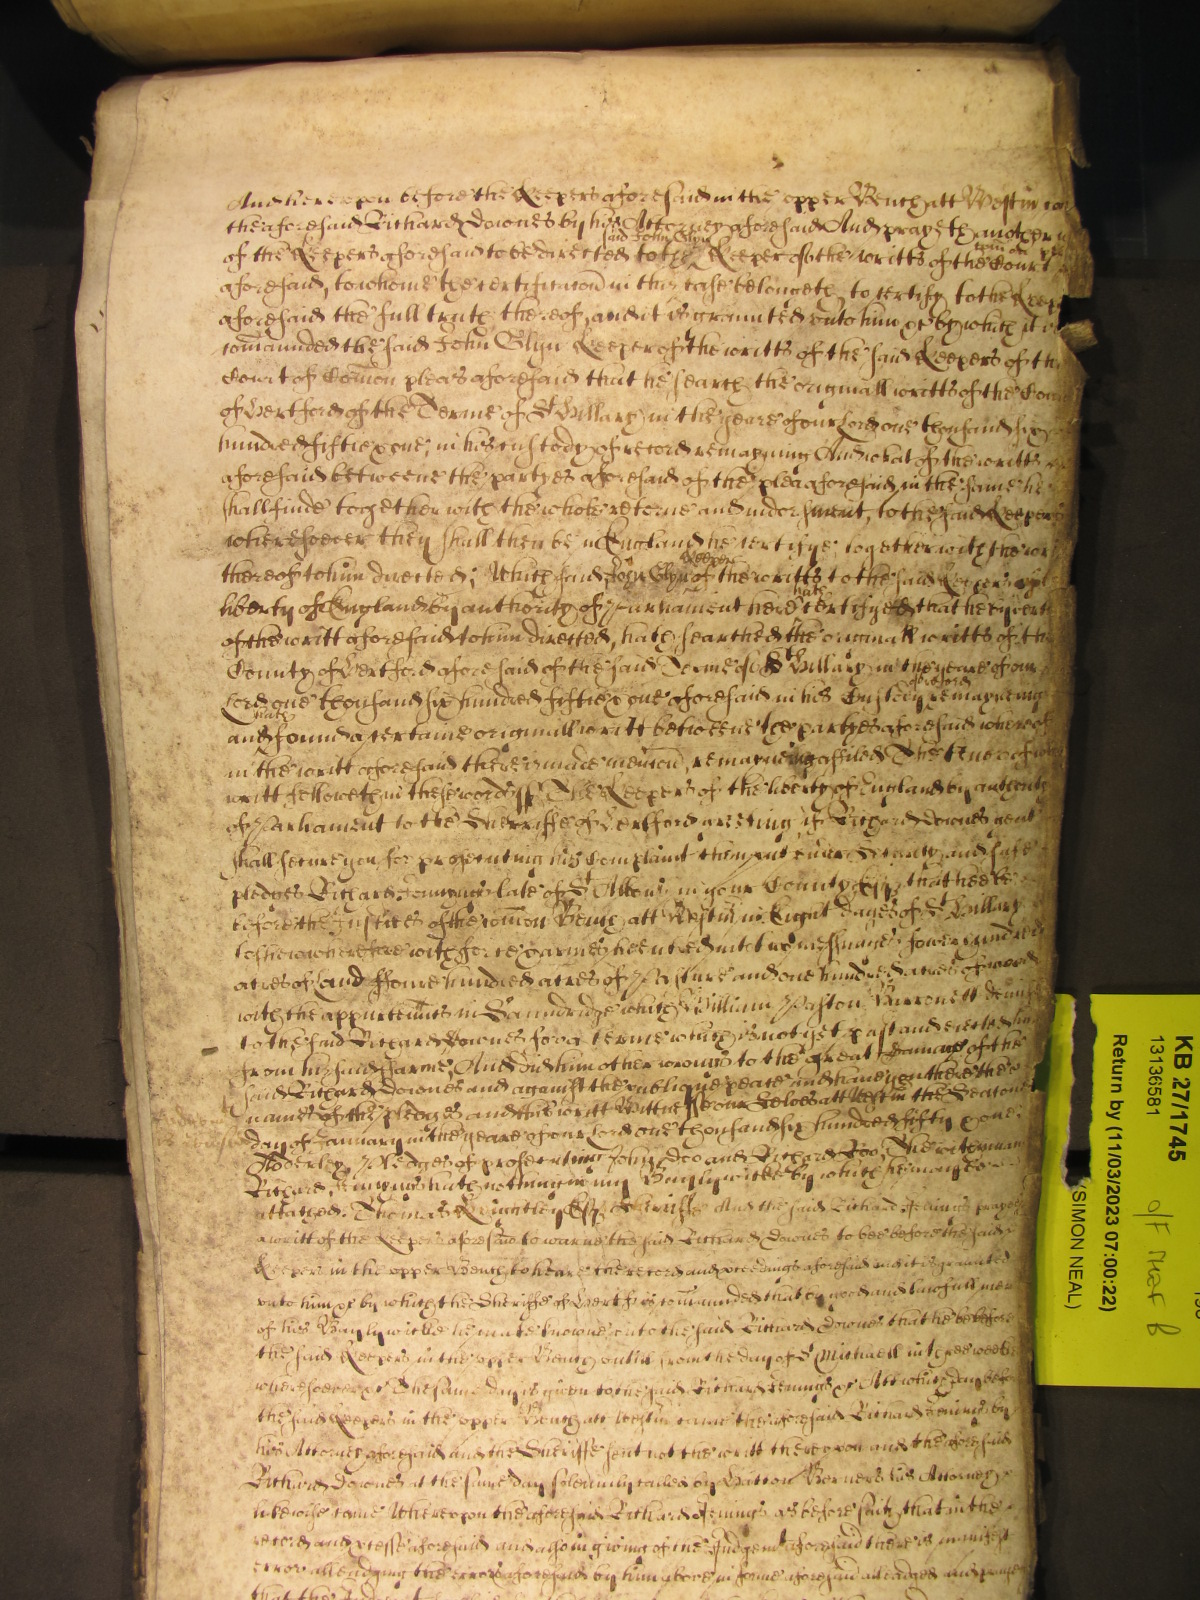 And hereupon before the Keepers aforesaid in the upper Bench att Westm
the aforesaid Richard Downes by his Attorney aforesaid And prayeth another
said John Glyn
of the Keepers aforesaid to bee directed to the Keeper of the writts of the Court
aforesaid, to whome the certificacon in this case belongeth, to certify to the Keep
aforesaid the full truth thereof, and it is graunted unto him &c by which it is
comaunded the said John Glyn Keeper of the writts of the said Keepers of the
Court of Comon pleas aforesaid that he search the originall writts of the Coun
of Hertford of the Terme of St Hillary in the yeare of our Lord one thousand six
hundred fiftie & one, in his custody of record remayning And what of the writts
aforesaid betweene the partyes aforesaid of the plea aforesaid, in the same he
shall finde together with the whole retorne and indorsment, to the said Keepers
wheresoever they shall then be in England he certifye, together with the wr
Keeper
thereof to him directed; Which said John Glyn of the writts to the said Keepers of the
hath
liberty of England by authority of Parliament here certifyed that he by vert
of the writt aforesaid to him directed, hath searched the originall writts of the
County of Hertford aforesaid of the said Terme of St Hillary in the yeare of our
of record
Lord one thousand six hundred fiftie & one aforesaid in his Custody remayneing
hath
and found a certaine originall writt betweene the partyes aforesaid whereof
in the writt aforesaid there is made mencon, remayneing affiled The tenor of w
writt followeth in these words ss The Keepers of the liberty of England by authority
of Parliament to the Sherriffe of Hertford greeting if Richard Downes gent
shall secure you for prosecuting his Complaint then put under Security and safe
pledges Richard Jennings late of St Albons in your County Esqr that hee be
before the Justices of the comon Bench att Westm in Eight dayes of St Hillary
to shew wherefore with force & armes hee entred into two messuages fower hundred
acres of Land ffoure hundred acres of Pasture and one hundred acres of wood
with the appurtennts in Sanndridge which William Paston Barronett demised
to the said Richard Downes for a terme which is not yet past and eiected him
from his said ffarme, And did him other wrongs to the great damage of the
said Richard Downes and against the publique peace and have you there the
names of the pledges and this writt Wittnesse our Selves att Westm the Seaventh
day of January in the yeare of our Lord one thousand six hundred fifty & one
Adderley, Pledges of prosecuting John Doo and Richard Roo, The within named
Richard Jennings hath nothing in my Baylywicke by which he may be
attached. Thomas Keightley Esqr Sherriffe And the said Richard Jenings prayes
a writt of the Keepers aforesaid to warne the said Richard Downes to bee before the said
Keepers in the upper Bench to heare the record and proceedings aforesaid and it is graunted
unto him &c by which the Sheriffe of Hertf is comaunded that by good and lawfull men
of his Baylywicke he make knowne unto the said Richard Downes that he be before
the said Keepers in the upper Bench untill from the day of St Michaell in three weekes
wheresoever &c The same day is given to the said Richard Jenings &c Att which day before
the said Keepers in the upper Bench att Westm came the aforesaid Richard Jenings by
his Attorney aforesaid and the Sheriffe sent not the writt thereupon and the aforesaid
Richard Downes at the same day solemnly called by Hatton Berners his Attorney
likewise came Whereupon the aforesaid Richard Jenings as before saith that in the
record and processe aforesaid and also in giving of the Judgemt aforesaid there is manifest
error alleadging the errors aforesaid by him above in forme aforesaid alleadged and prayes
that the
KB 27/1745
13136581
Return by (11/03/2023 07:00:22)
(SIMON NEAL)